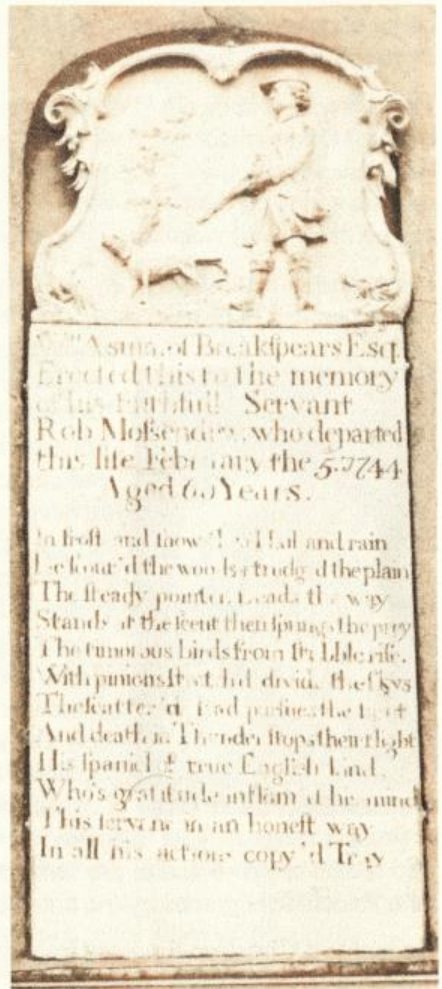 Will Ashby of Breakſpears Esq
Erected this to the memory
of his Faithfull Servant
Rob Moſsendew, who departed
this life February the 5. 1744
Aged 60 Years.
In froſt and ſnow thro' Hail and rain
He ſcour'd the woods & trudg'd the plain
The ſteady pointer Leads the way
Stands at the ſcent then ſprings the prey
The timorous birds from ſtubble riſe.
With pinions ſtretch'd divide the ſkys
The ſcatter'd Lead purſues the
And death in Thunder ſtops their flight
His ſpaniel of true Engliſh kind
Who's gratitude inflam'd his mind
This ſervant in an honeſt way
In all his actions copy'd Tray